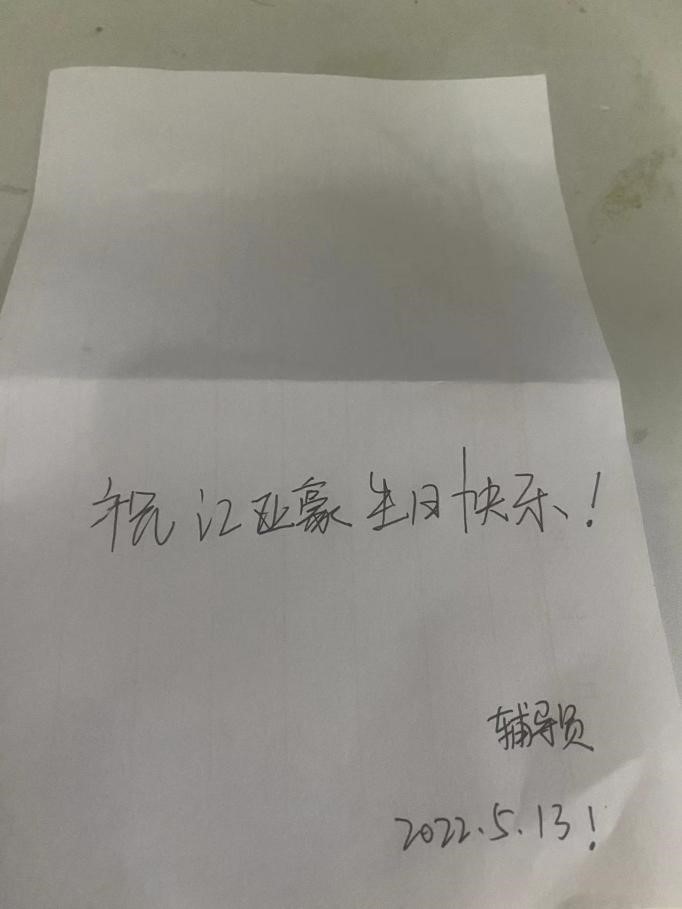 祝江亚豪生日快乐!
辅导员
2022.5.13!